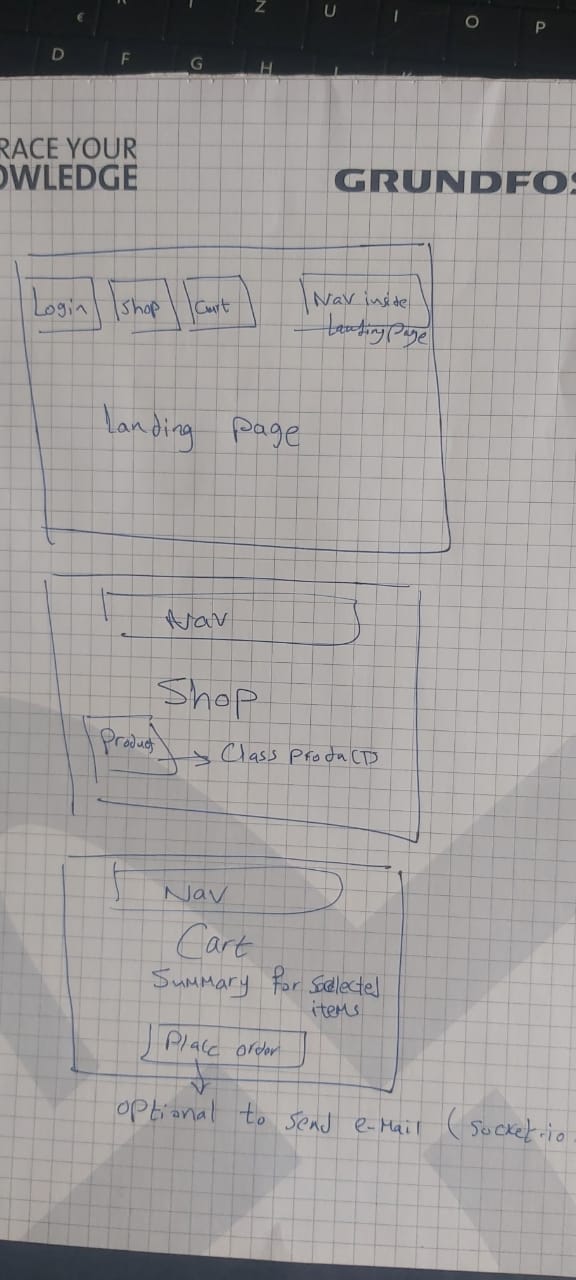 Z U I O P
D F G H
RACE YOUR
OWLEDGE
GRUNDFOS
Login
Shop
Cart
Nav inside
Landing Page
Landing page
Nav
Shop
Product
Class Product
Nav
Cart
Summary for selected
items
Place order
optional to send e-mail (socket.io